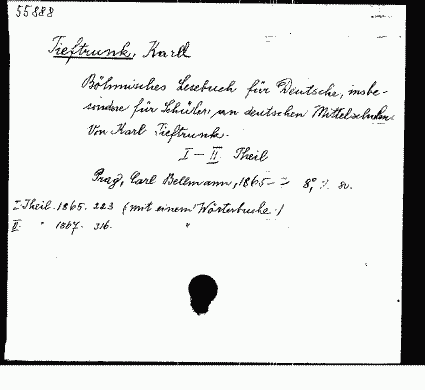 55888
Tieftrunk, Karl
Böhmisches Lesebuch für Deutsche, insbe-
sondere für Schüler an deutschen Mittelschulen.
Von Karl Tieftrunk.
I - II. Theil
Prag, Carl Bellmann, 1865- 8°,
I Theil. 1865. 223 (mit einem Wörterbuche.)
II. " 1867. 316. "